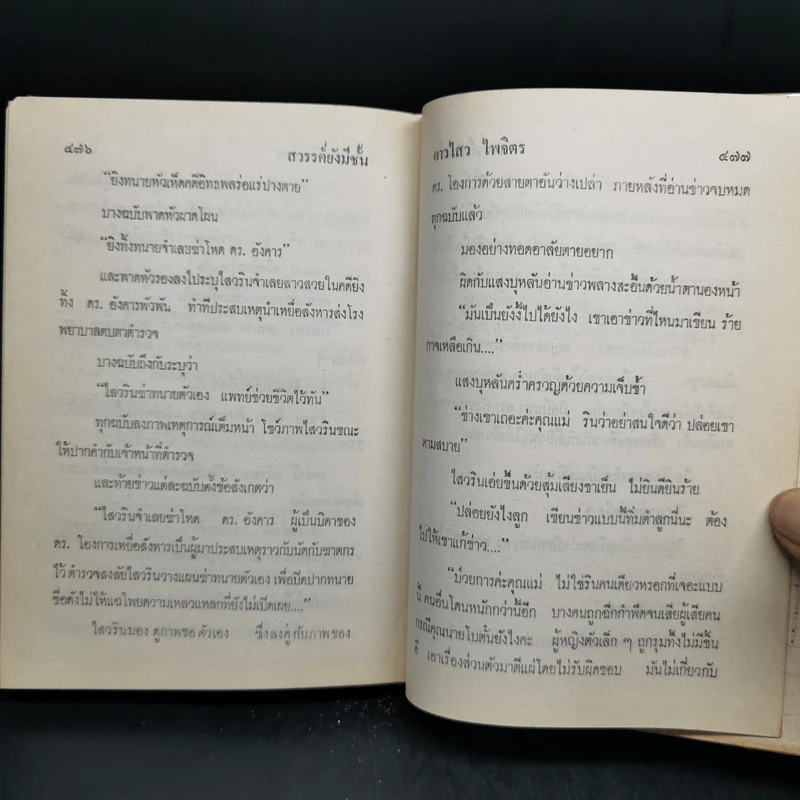 ๔๗๖
สวรรค์ยังมีชั้น
"ยิงทนายหัวเห็ดคดีอิทธพลร่อแร่ปางตาย"
บางฉบับพาดหัวผาดโผน
"ยิงทิ้งทนายจำเลยฆ่าโหด ดร. อังคาร"
และพาดหัวรองลงไประบุไสวรินจำเลยสาวสวยในคดียิง
ทิ้ง ดร. อังคารพัวพัน ทำทีประสบเหตุนำเหยื่อสังหารส่งโรง
พยาบาลตบตาตำรวจ
บางฉบับถึงกับระบุว่า
"ไสวรินฆ่าทนายตัวเอง แพทย์ช่วยชีวิตไว้ทัน"
ทุกฉบับลงภาพเหตุการณ์เต็มหน้า โชว์ภาพไสวรินขณะ
ให้ปากคำกับเจ้าหน้าที่ตำรวจ
และท้ายข่าวแต่ละฉบับตั้งข้อสังเกตว่า
"ไสวรินจำเลยฆ่าโหด ดร. อังคาร ผู้เป็นบิดาของ
ดร. โองการเหยื่อสังหารเป็นผู้มาประสบเหตุราวกับนัดกับฆาตกร
ไว้ ตำรวจสงสัยไสวรินวางแผนฆ่าทนายตัวเอง เพื่อปิดปากทนาย
ชื่อดังไม่ให้แฉโพยความเหลวแหลกที่ยังไม่เปิดเผย...."
ไสวรินมอง ดูภาพของตัวเอง ซึ่งลงคู่กับภาพของ
ดาวไสว ไพจิตร
๔๗๗
ดร. โองการด้วยสายตาอันว่างเปล่า ภายหลังที่อ่านข่าวจบหมด
ทุกฉบับแล้ว
มองอย่างทอดอาลัยตายอยาก
ผิดกับแสงบุหลันอ่านข่าวพลางสะอื้นด้วยน้ำตานองหน้า
"มันเป็นยังงี้ไปได้ยังไง เขาเอาข่าวที่ไหนมาเขียน ร้าย
กาจเหลือเกิน...."
แสงบุหลันคร่ำครวญด้วยความเจ็บช้ำ
"ช่างเขาเถอะค่ะคุณแม่ รินว่าอย่าสนใจดีว่า ปล่อยเขา
ตามสบาย"
ไสวรินเอ่ยขึ้นด้วยสุ้มเสียงชาเย็น ไม่ยินดียินร้าย
"ปล่อยยังไงลูก เขียนข่าวแบบนี้ทิ่มตำลูกนี่นะ ต้อง
ไปให้เขาแก้ข่าว...."
"ป่วยการค่ะคุณแม่ ไม่ใช่รินคนเดียวหรอกที่เจอะแบบ
นี้ คนอื่นโดนหนักกว่านี้อีก บางคนถูกฉีกกำพืดจนเสียผู้เสียคน
กรณีคุณนายโบตั๋นยังไงคะ ผู้หญิงตัวเล็ก ๆ ถูกรุมทึ้งไม่มีชิ้น
ดี เอาเรื่องส่วนตัวมาตีแผ่โดยไม่รับผิดชอบ มันไม่เกี่ยวกับ